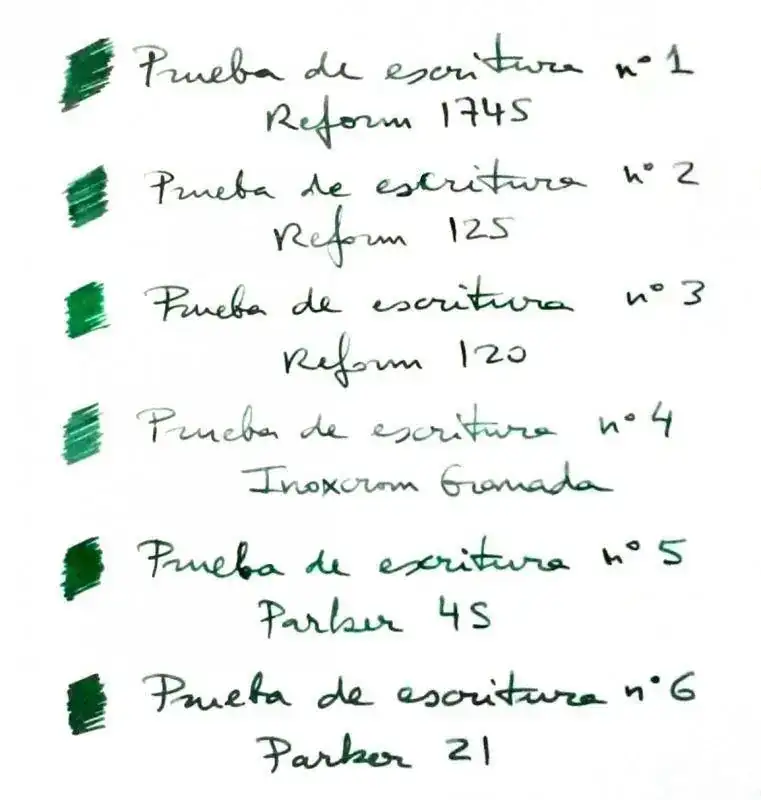 Prueba de escritura nº 1
Reform 1745
Prueba de escritura nº 2
Reform 125
Prueba de escritura nº 3
Reform 120
Prueba de escritura nº 4
Inoxcrom Granada
Prueba de escritura nº 5
Parker 45
Prueba de escritura nº 6
Parker 21